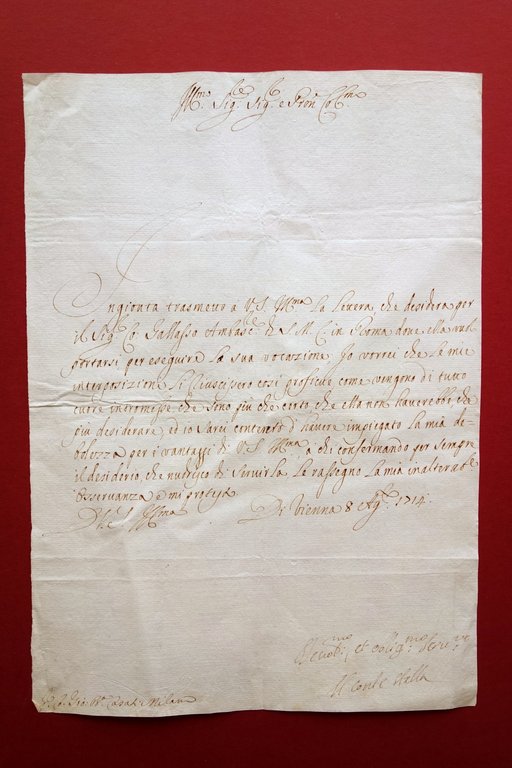 Ill.mo Sig.re Sig.r e Pron Col.mo
Ingionta trasmetto a V.S. Ill.ma la lettera, che desidera per
il Sig.r Co. Gallasso Ambasc.r di S.M.C. in Roma doue ella vuol
portarsi per eseguire la sua vocazione. Io vorrei che le mie
interposizioni Li riuscissero così proficue come vengono di tutto
cuore intromesse che sono più che certo che ella non hauerebbe che
più desiderare, ed io sarei contento d'hauere impiegato la mia de-
bolezza per i vantaggi di V.S. Ill.ma à chi confermando per sempre
il desiderio, che nudrisco di servirla Le rassegno la mia inalterab.e
osseruanza e mi protesto
Di V.S. Ill.ma Di Vienna 8 Ag.to 1714.
Deuot.mo et oblig.mo Seru.re
Il Conte Stella
Milano